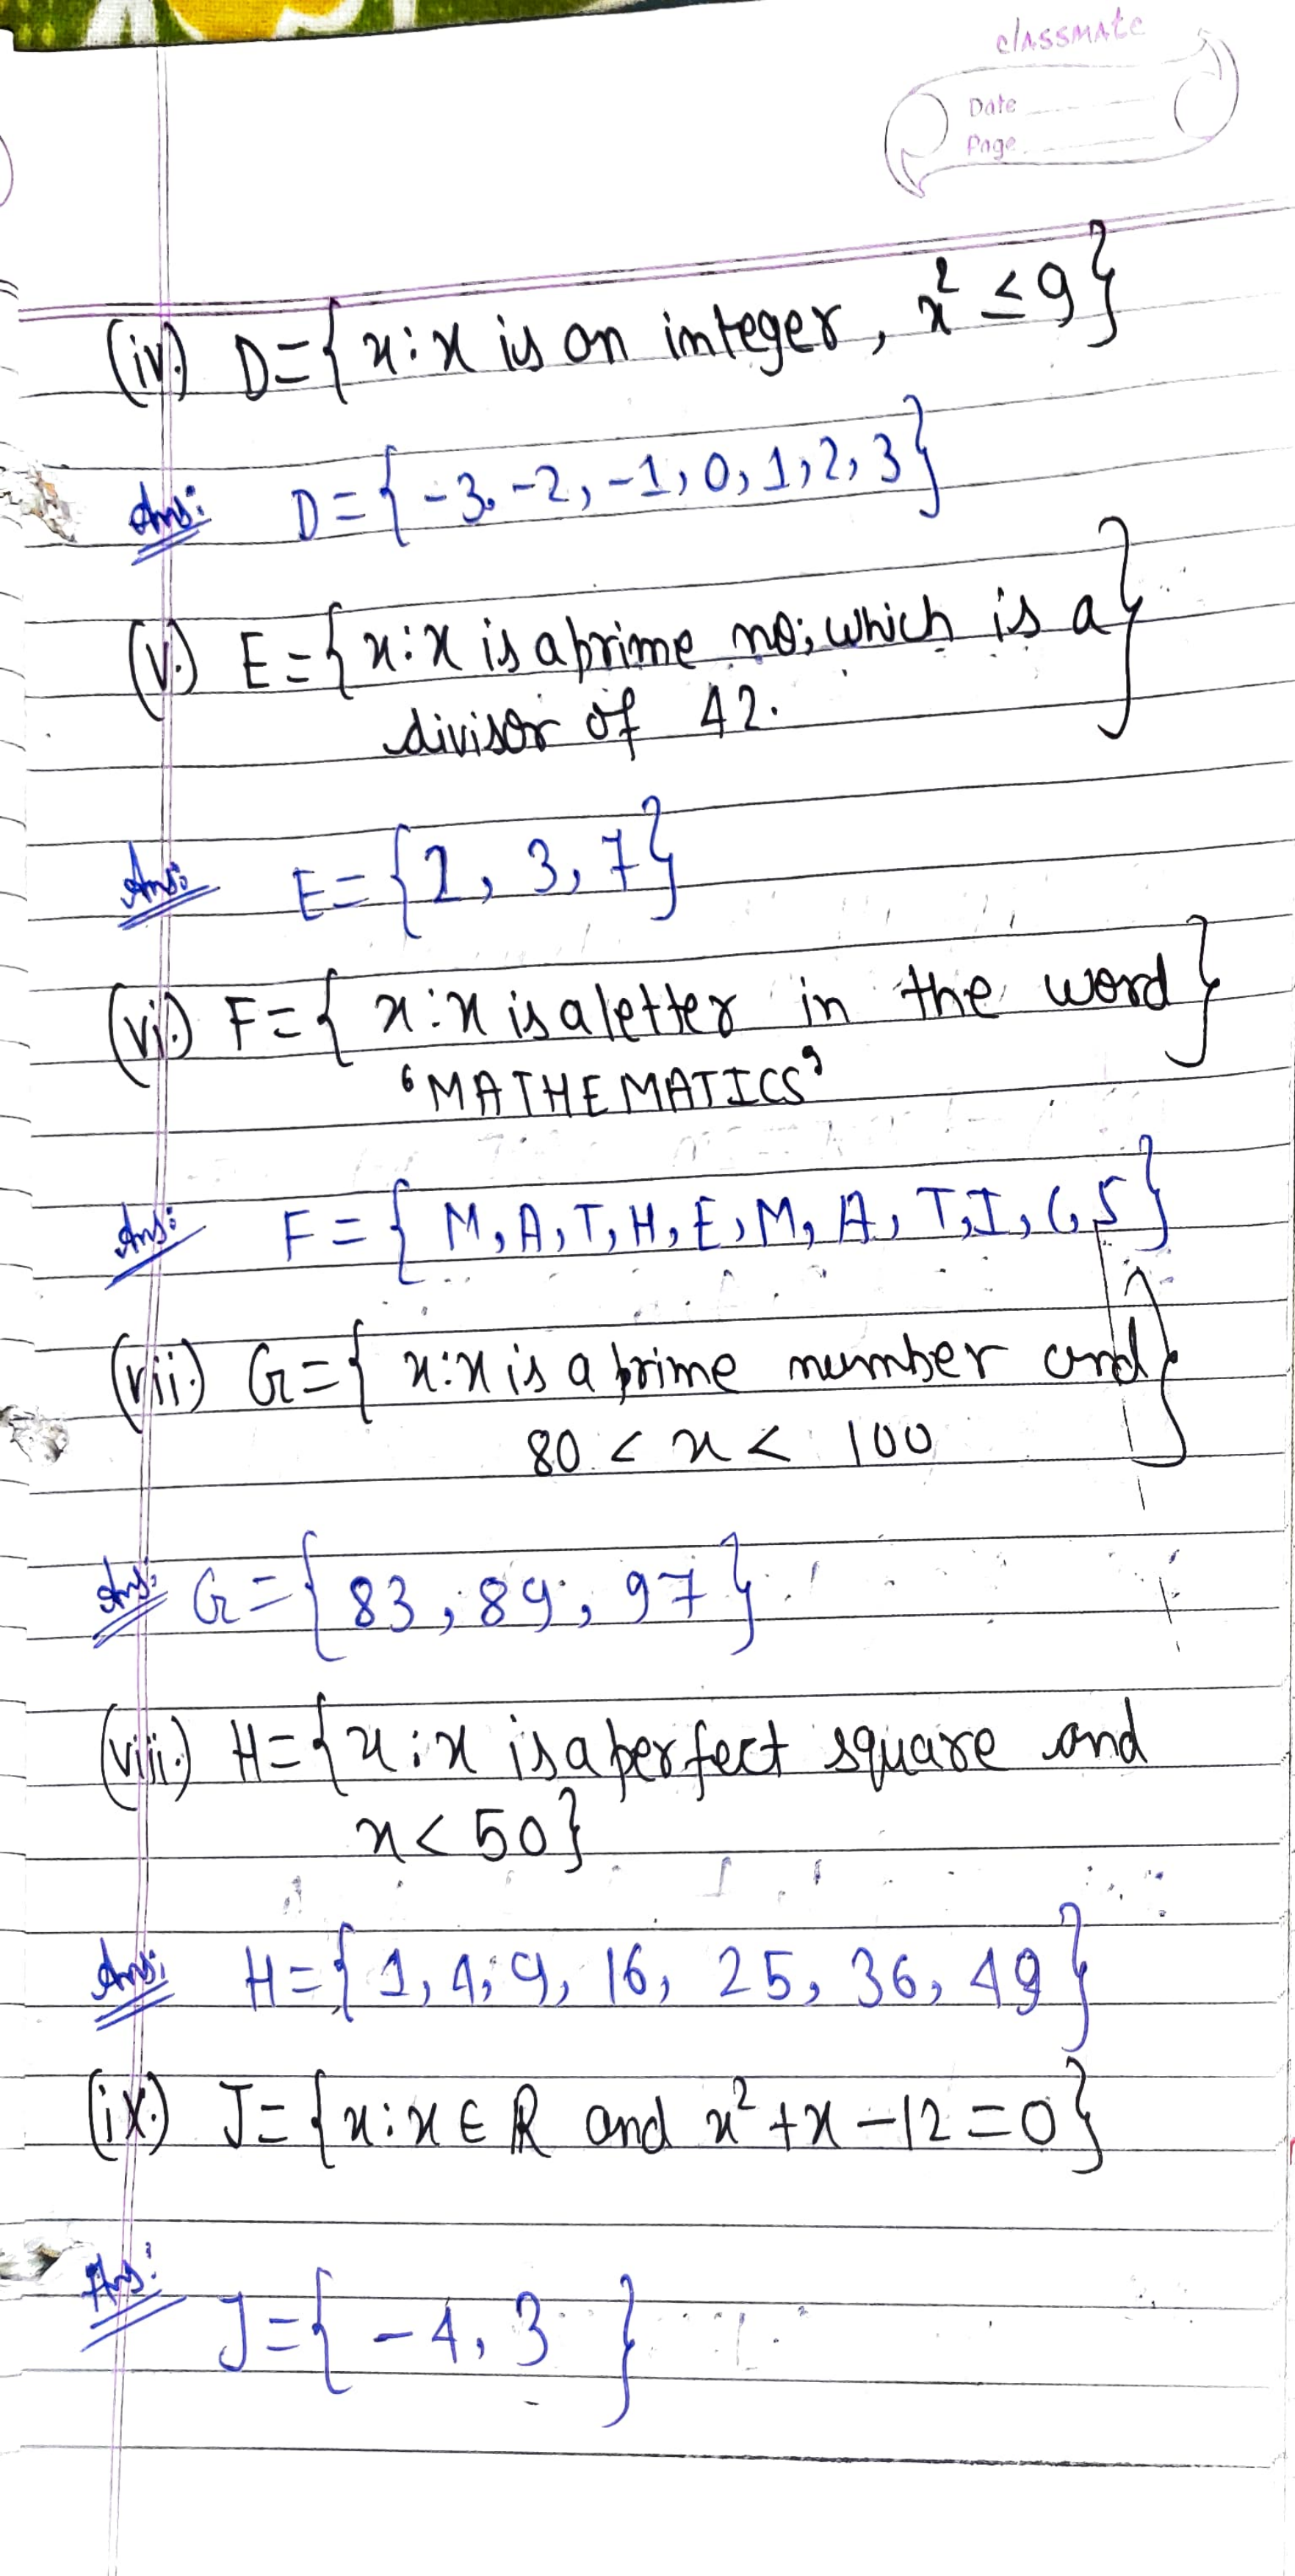 classmate
Date
Page
(iv.) D={x:x is an integer, x² ≤9}
Ans: D={-3,-2,-1,0,1,2,3}
(v.) E={x:x is a prime no; which is a}
divisor of 42.
Ans: E={2, 3, 7}
(vi.) F={x:x is a letter in the word}
'MATHEMATICS'
Ans: F={M, A, T, H, E, M, A, T, I, C, S}
(vii.) G={x:x is a prime number and}
80 < x < 100
Ans: G={83, 89, 97}
(viii.) H={x:x is a perfect square and
x<50}
Ans: H={1, 4, 9, 16, 25, 36, 49}
(ix.) J={x:x∈R and x²+x-12=0}
Ans: J={-4, 3}